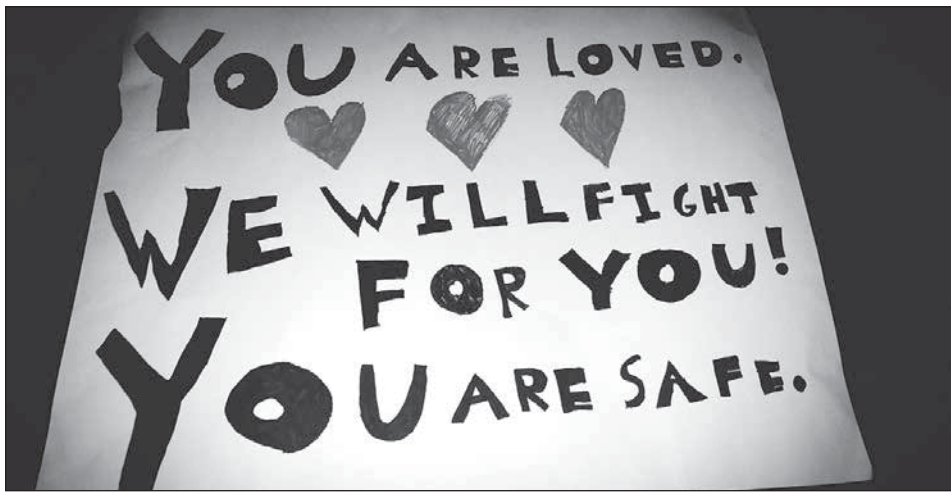 YOU ARE LOVED.
WE WILL FIGHT
FOR YOU!
YOU ARE SAFE.